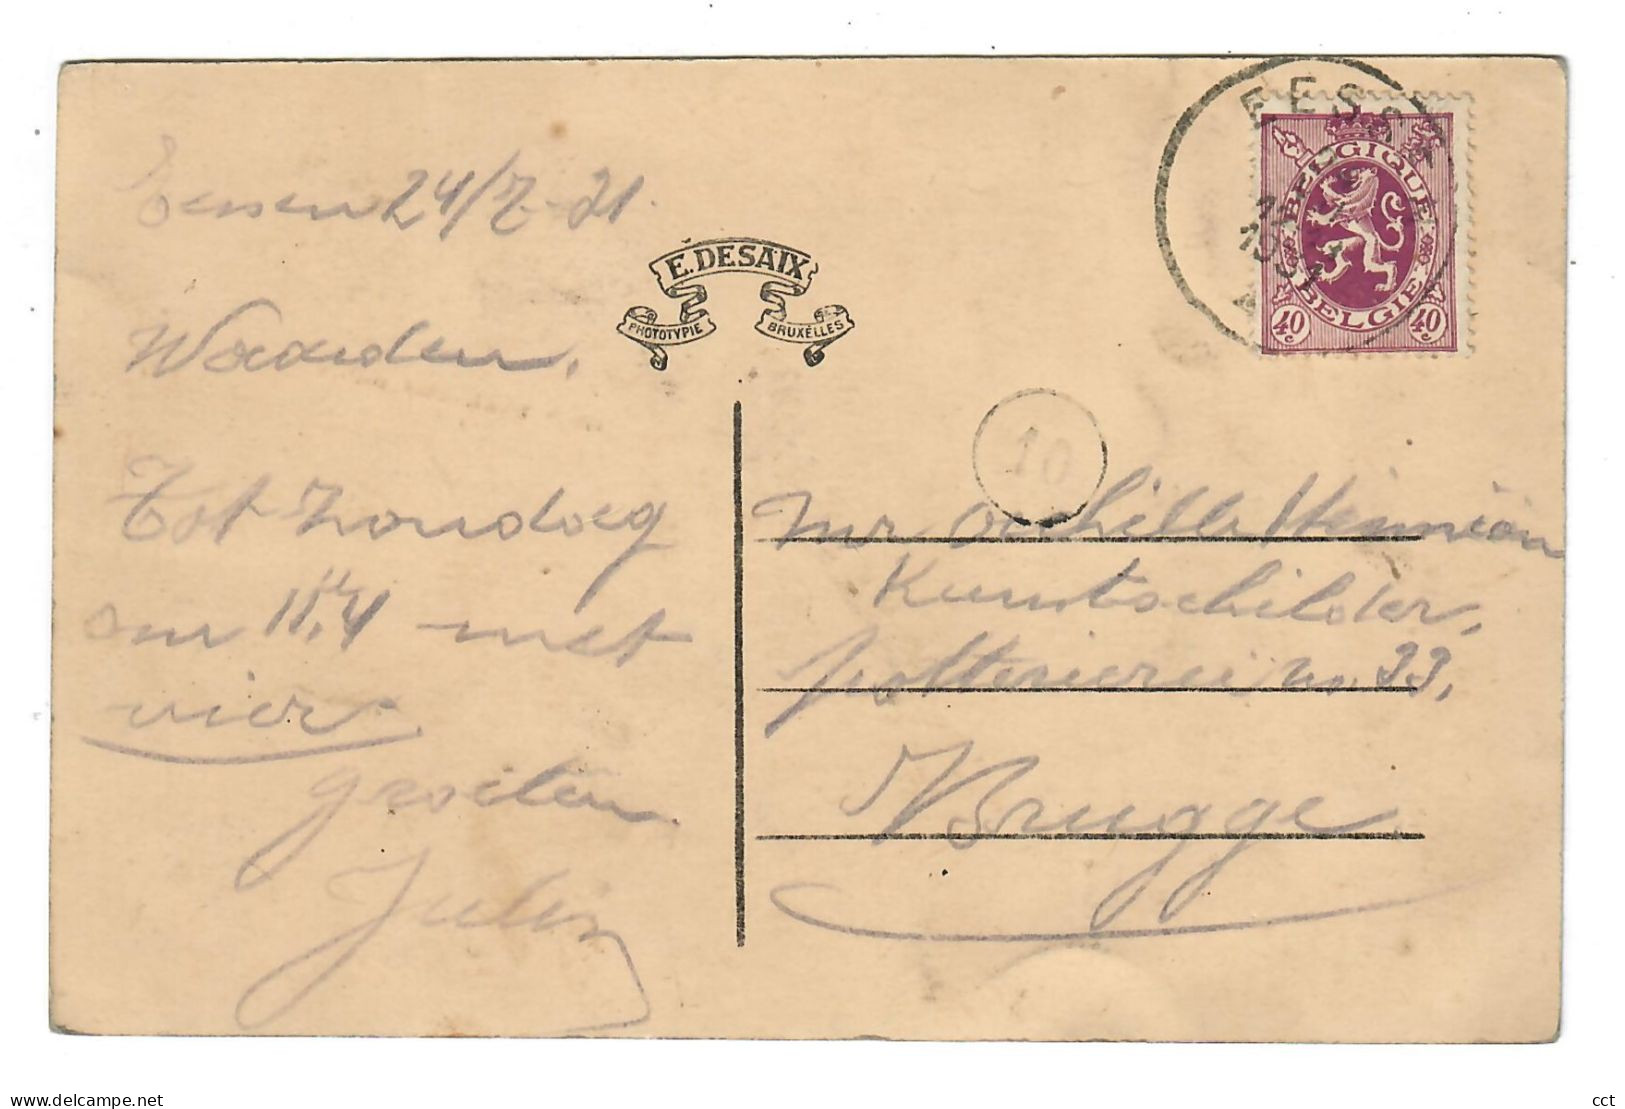 Eessen 24/7-31.
Waarden,
Tot Zondag
om 11,4 met
vier.
groeten
Julien
E. DESAIX
PHOTOTYPIE BRUXELLES
EESSEN
1931
BELGIQUE
BELGIE
40 c 40 c
10
Mr Achille Hennion
Kunstschilder,
potterierei No 33,
Brugge.
cct